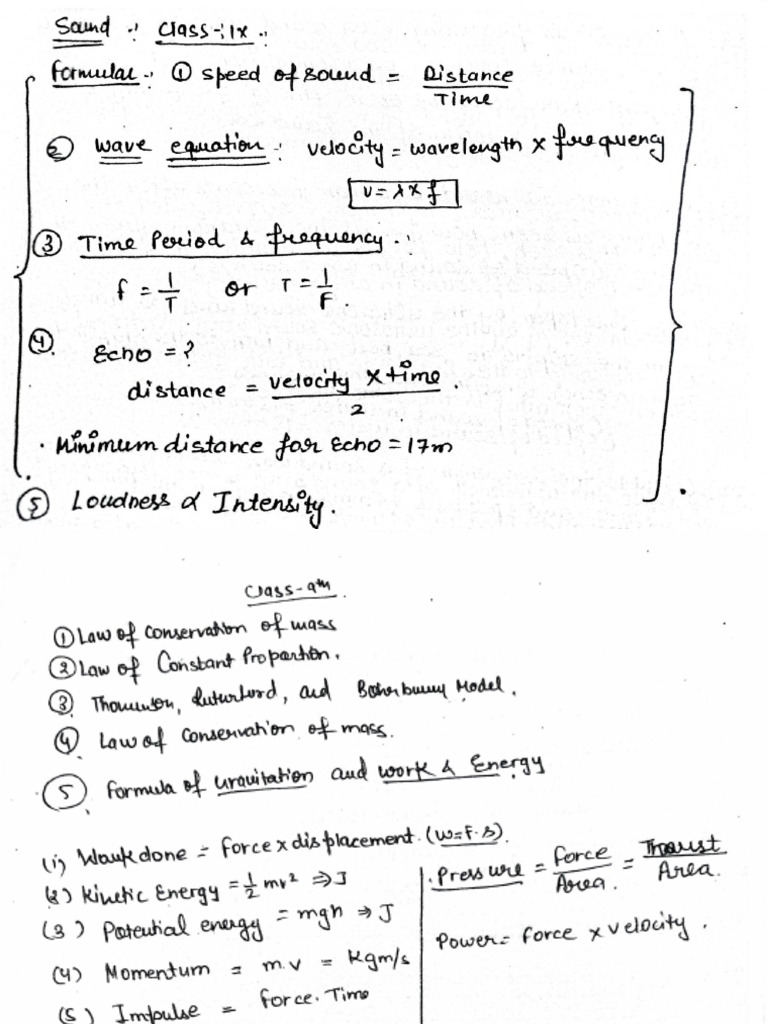 Sound :. Class-:IX .:
Formulae :. ① speed of sound = Distance
Time
② wave equation : velocity = wavelength × frequency
v = λ × f
③ Time Period & frequency . :
f = 1/T or T = 1/F .
④. Echo = ?
distance = velocity × time .
2
. Minimum distance for Echo = 17m
⑤ Loudness α Intensity .
Class-9th .
① Law of conservation of mass
② Law of Constant Proportion.
③ Thomnson, Ruturford, and Model .
④ Law of conservation of mass.
⑤ formula of Gravitation and work & Energy
(1) Work done = force × displacement. (W=F.s).
(2) Kinetic Energy = 1/2 mv² ⇒ J
(3) Potential energy = mgh ⇒ J
(4) Momentum = m.v = Kgm/s
(5) Impulse = force. Time
. Pressure = force/Area . = Thrust/Area .
Power = force × velocity .